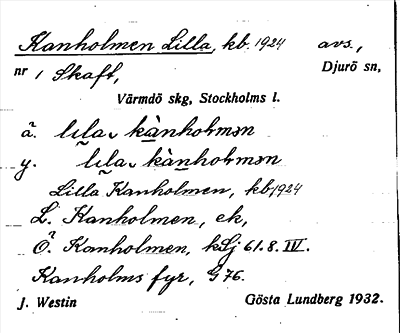 Kanholmen Lilla, kb. 1924 avs.,
nr 1 Skaft, Djurö sn,
Värmdö skg, Stockholms l.
ä. lɩla, kànholmən
y. lɩla, kànholmən
Lilla Kanholmen, kb, 1924
L. Kanholmen, ek,
Ö. Kanholmen, kSj 61.8.IV.
Kanholms fyr, G 76.
J. Westin Gösta Lundberg 1932.